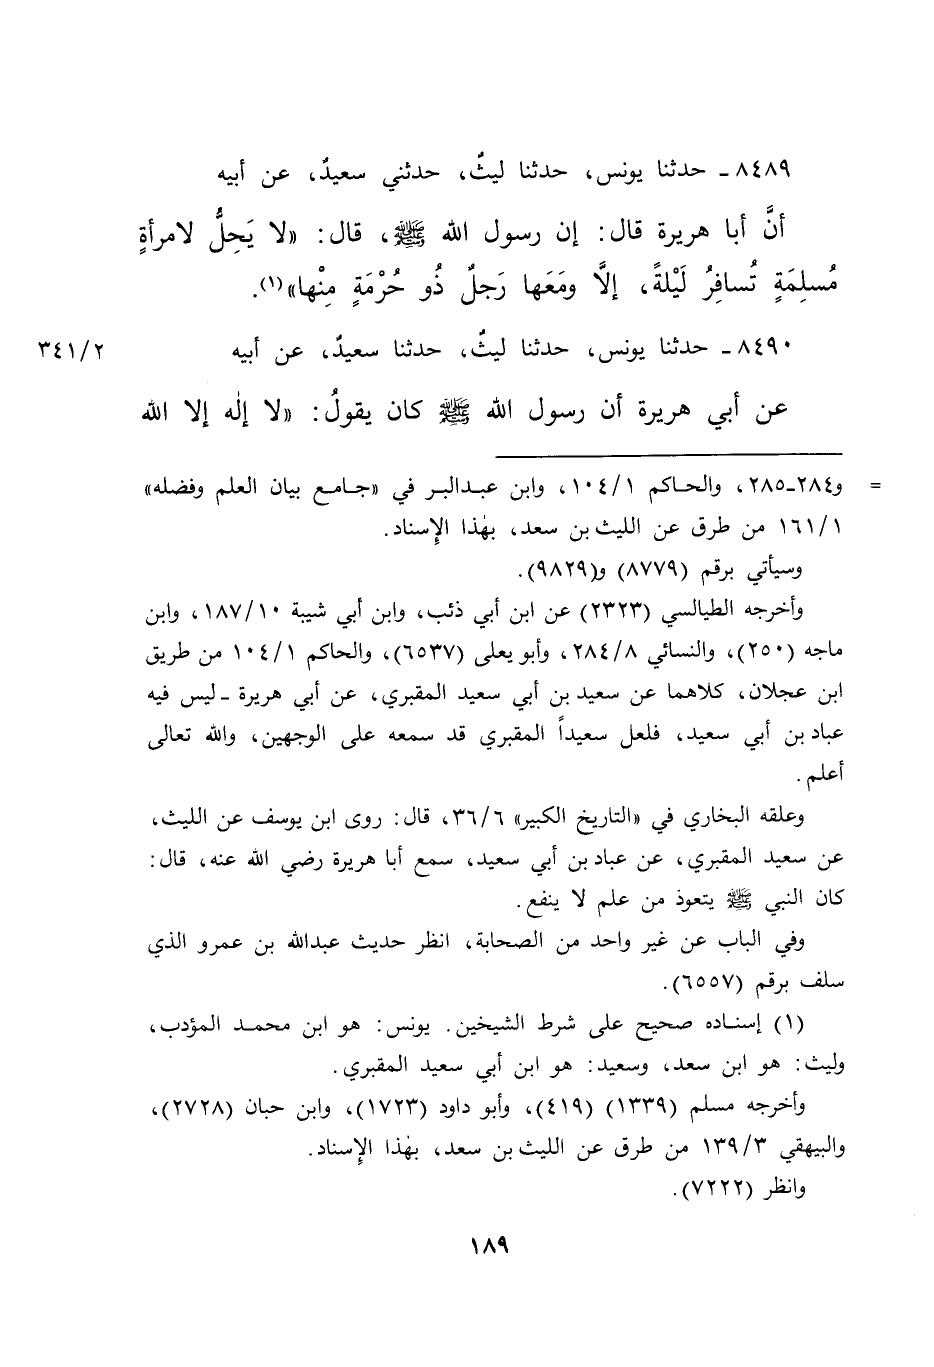 ٨٤٨٩ـ حدثنا يونس، حدثنا ليثٌ، حدثني سعيدٌ، عن أبيه
أنَّ أبا هريرة قال: إن رسول الله ﷺ، قال: «لا يَحِلُّ لامرأةٍ
مُسلِمَةٍ تُسافِرُ لَيْلةً، إلَّا ومَعَها رَجلٌ ذُو حُرْمَةٍ مِنْها»(١).
٨٤٩٠ـ حدثنا يونس، حدثنا ليثٌ، حدثنا سعيدٌ، عن أبيه ٣٤١/٢
عن أبي هريرة أن رسول الله ﷺ كان يقولُ: «لا إلٰه إلا الله
= و٢٨٤ـ٢٨٥، والحاكم ١٠٤/١، وابن عبدالبر في «جامع بيان العلم وفضله»
١٦١/١ من طرق عن الليث بن سعد، بهٰذا الإِسناد.
وسيأتي برقم (٨٧٧٩) و(٩٨٢٩).
وأخرجه الطيالسي (٢٣٢٣) عن ابن أبي ذئب، وابن أبي شيبة ١٨٧/١٠، وابن
ماجه (٢٥٠)، والنسائي ٢٨٤/٨، وأبو يعلى (٦٥٣٧)، والحاكم ١٠٤/١ من طريق
ابن عجلان، كلاهما عن سعيد بن أبي سعيد المقبري، عن أبي هريرة ـ ليس فيه
عباد بن أبي سعيد، فلعل سعيداً المقبري قد سمعه على الوجهين، والله تعالى
أعلم.
وعلقه البخاري في «التاريخ الكبير» ٣٦/٦، قال: روى ابن يوسف عن الليث،
عن سعيد المقبري، عن عباد بن أبي سعيد، سمع أبا هريرة رضي الله عنه، قال:
كان النبي ﷺ يتعوذ من علم لا ينفع.
وفي الباب عن غير واحد من الصحابة، انظر حديث عبدالله بن عمرو الذي
سلف برقم (٦٥٥٧).
(١) إسناده صحيح على شرط الشيخين. يونس: هو ابن محمد المؤدب،
وليث: هو ابن سعد، وسعيد: هو ابن أبي سعيد المقبري.
وأخرجه مسلم (١٣٣٩) (٤١٩)، وأبو داود (١٧٢٣)، وابن حبان (٢٧٢٨)،
والبيهقي ١٣٩/٣ من طرق عن الليث بن سعد، بهٰذا الإِسناد.
وانظر (٧٢٢٢).
١٨٩